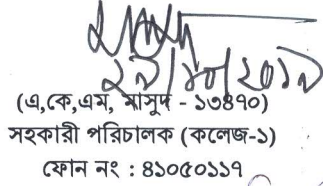 ২৯/১০/২০১৯
(এ,কে,এম, মাসুদ - ১৩৪৭০)
সহকারী পরিচালক (কলেজ-১)
ফোন নং : ৪১০৫০১১৭